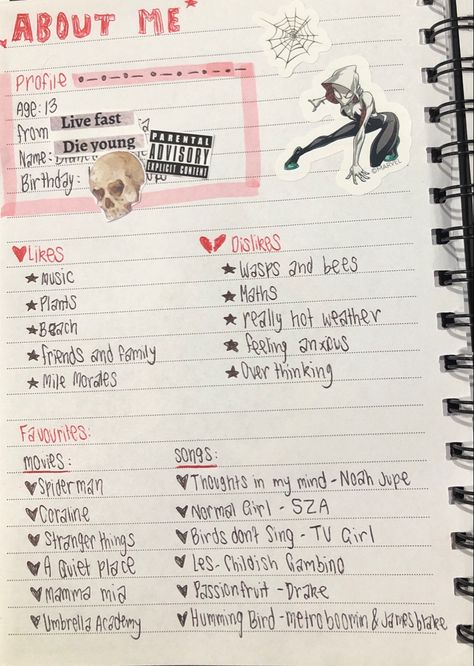 ABOUT ME
Profile
Age: 13
from
Live fast
Name:
Die young
PARENTAL
ADVISORY
EXPLICIT CONTENT
Birthday:
©MARVEL
Likes
Music
Plants
Beach
friends and family
Mile Morales
Dislikes
Wasps and bees
Maths
really hot weather
feeling anxious
Over thinking
Favourites:
movies:
Spiderman
Coraline
Stranger things
A Quiet place
Mamma mia
Umbrella Academy
songs:
Thoughts in my mind - Noah Jupe
Normal Girl - SZA
Birds dont Sing - TV Girl
Les - Childish Gambino
Passionfruit - Drake
Humming Bird - metroboomin & James blake